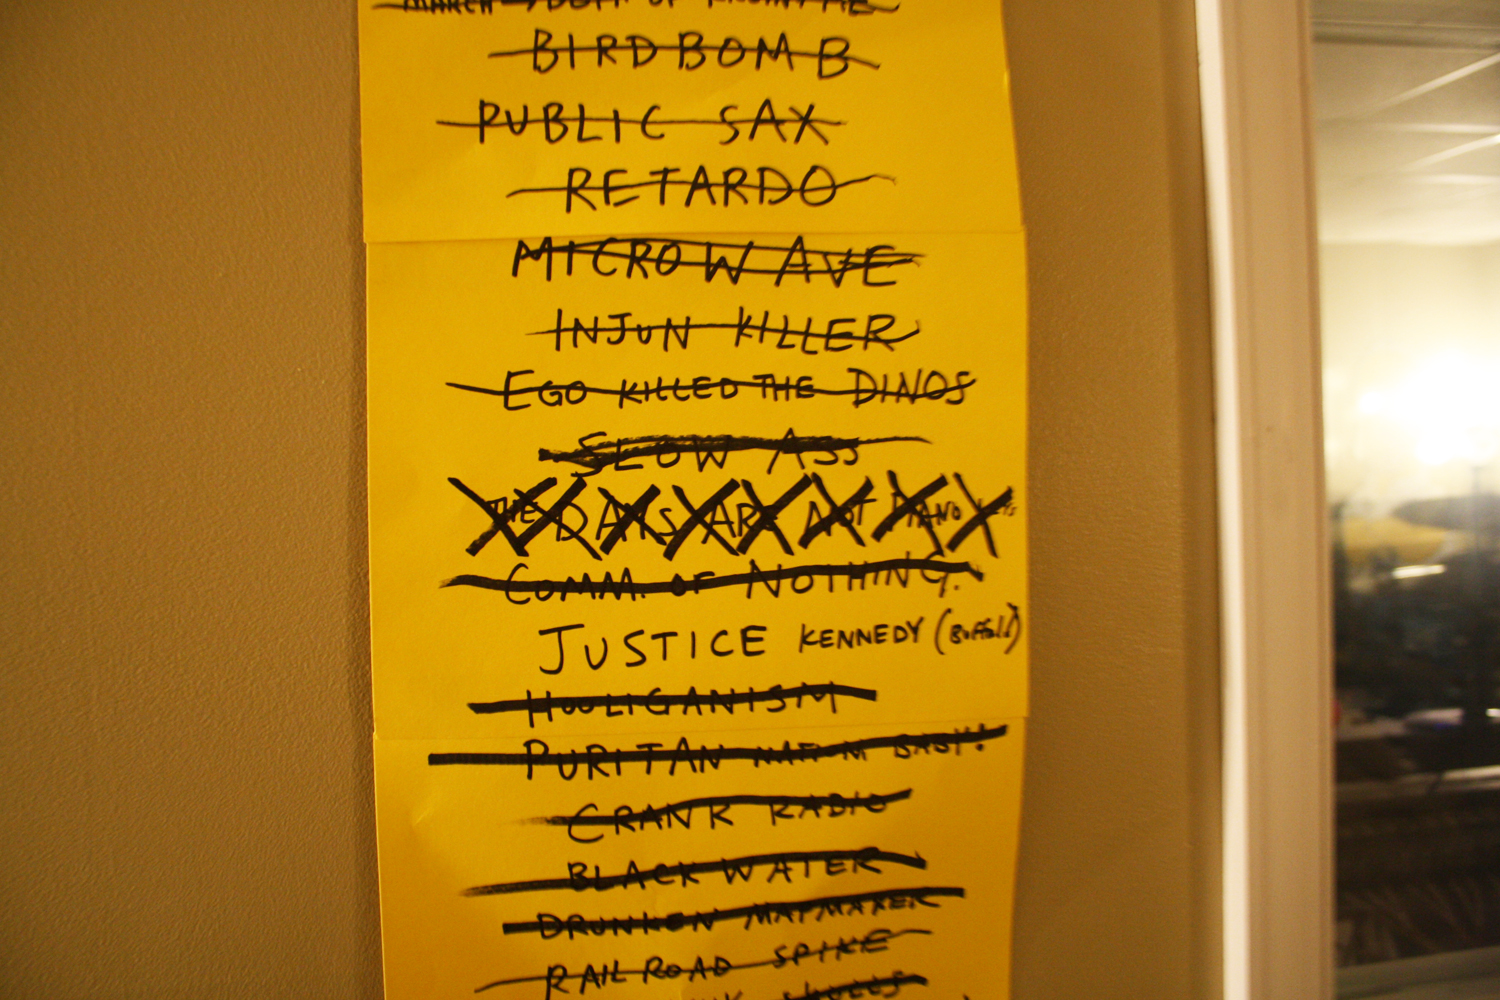 MARCH
BIRD BOMB
PUBLIC SAX
RETARDO
MICROWAVE
INJUN KILLER
EGO KILLED THE DINOS
SLOW ASS
THE DAYS ARE NOT PIANO
COMM. OF NOTHING.
JUSTICE KENNEDY (Buffalo)
HOOLIGANISM
PURITAN BABY!
CRANK RADIO
BLACKWATER
DRUNKEN MAPMAKER
RAILROAD SPIKE
SKULLS